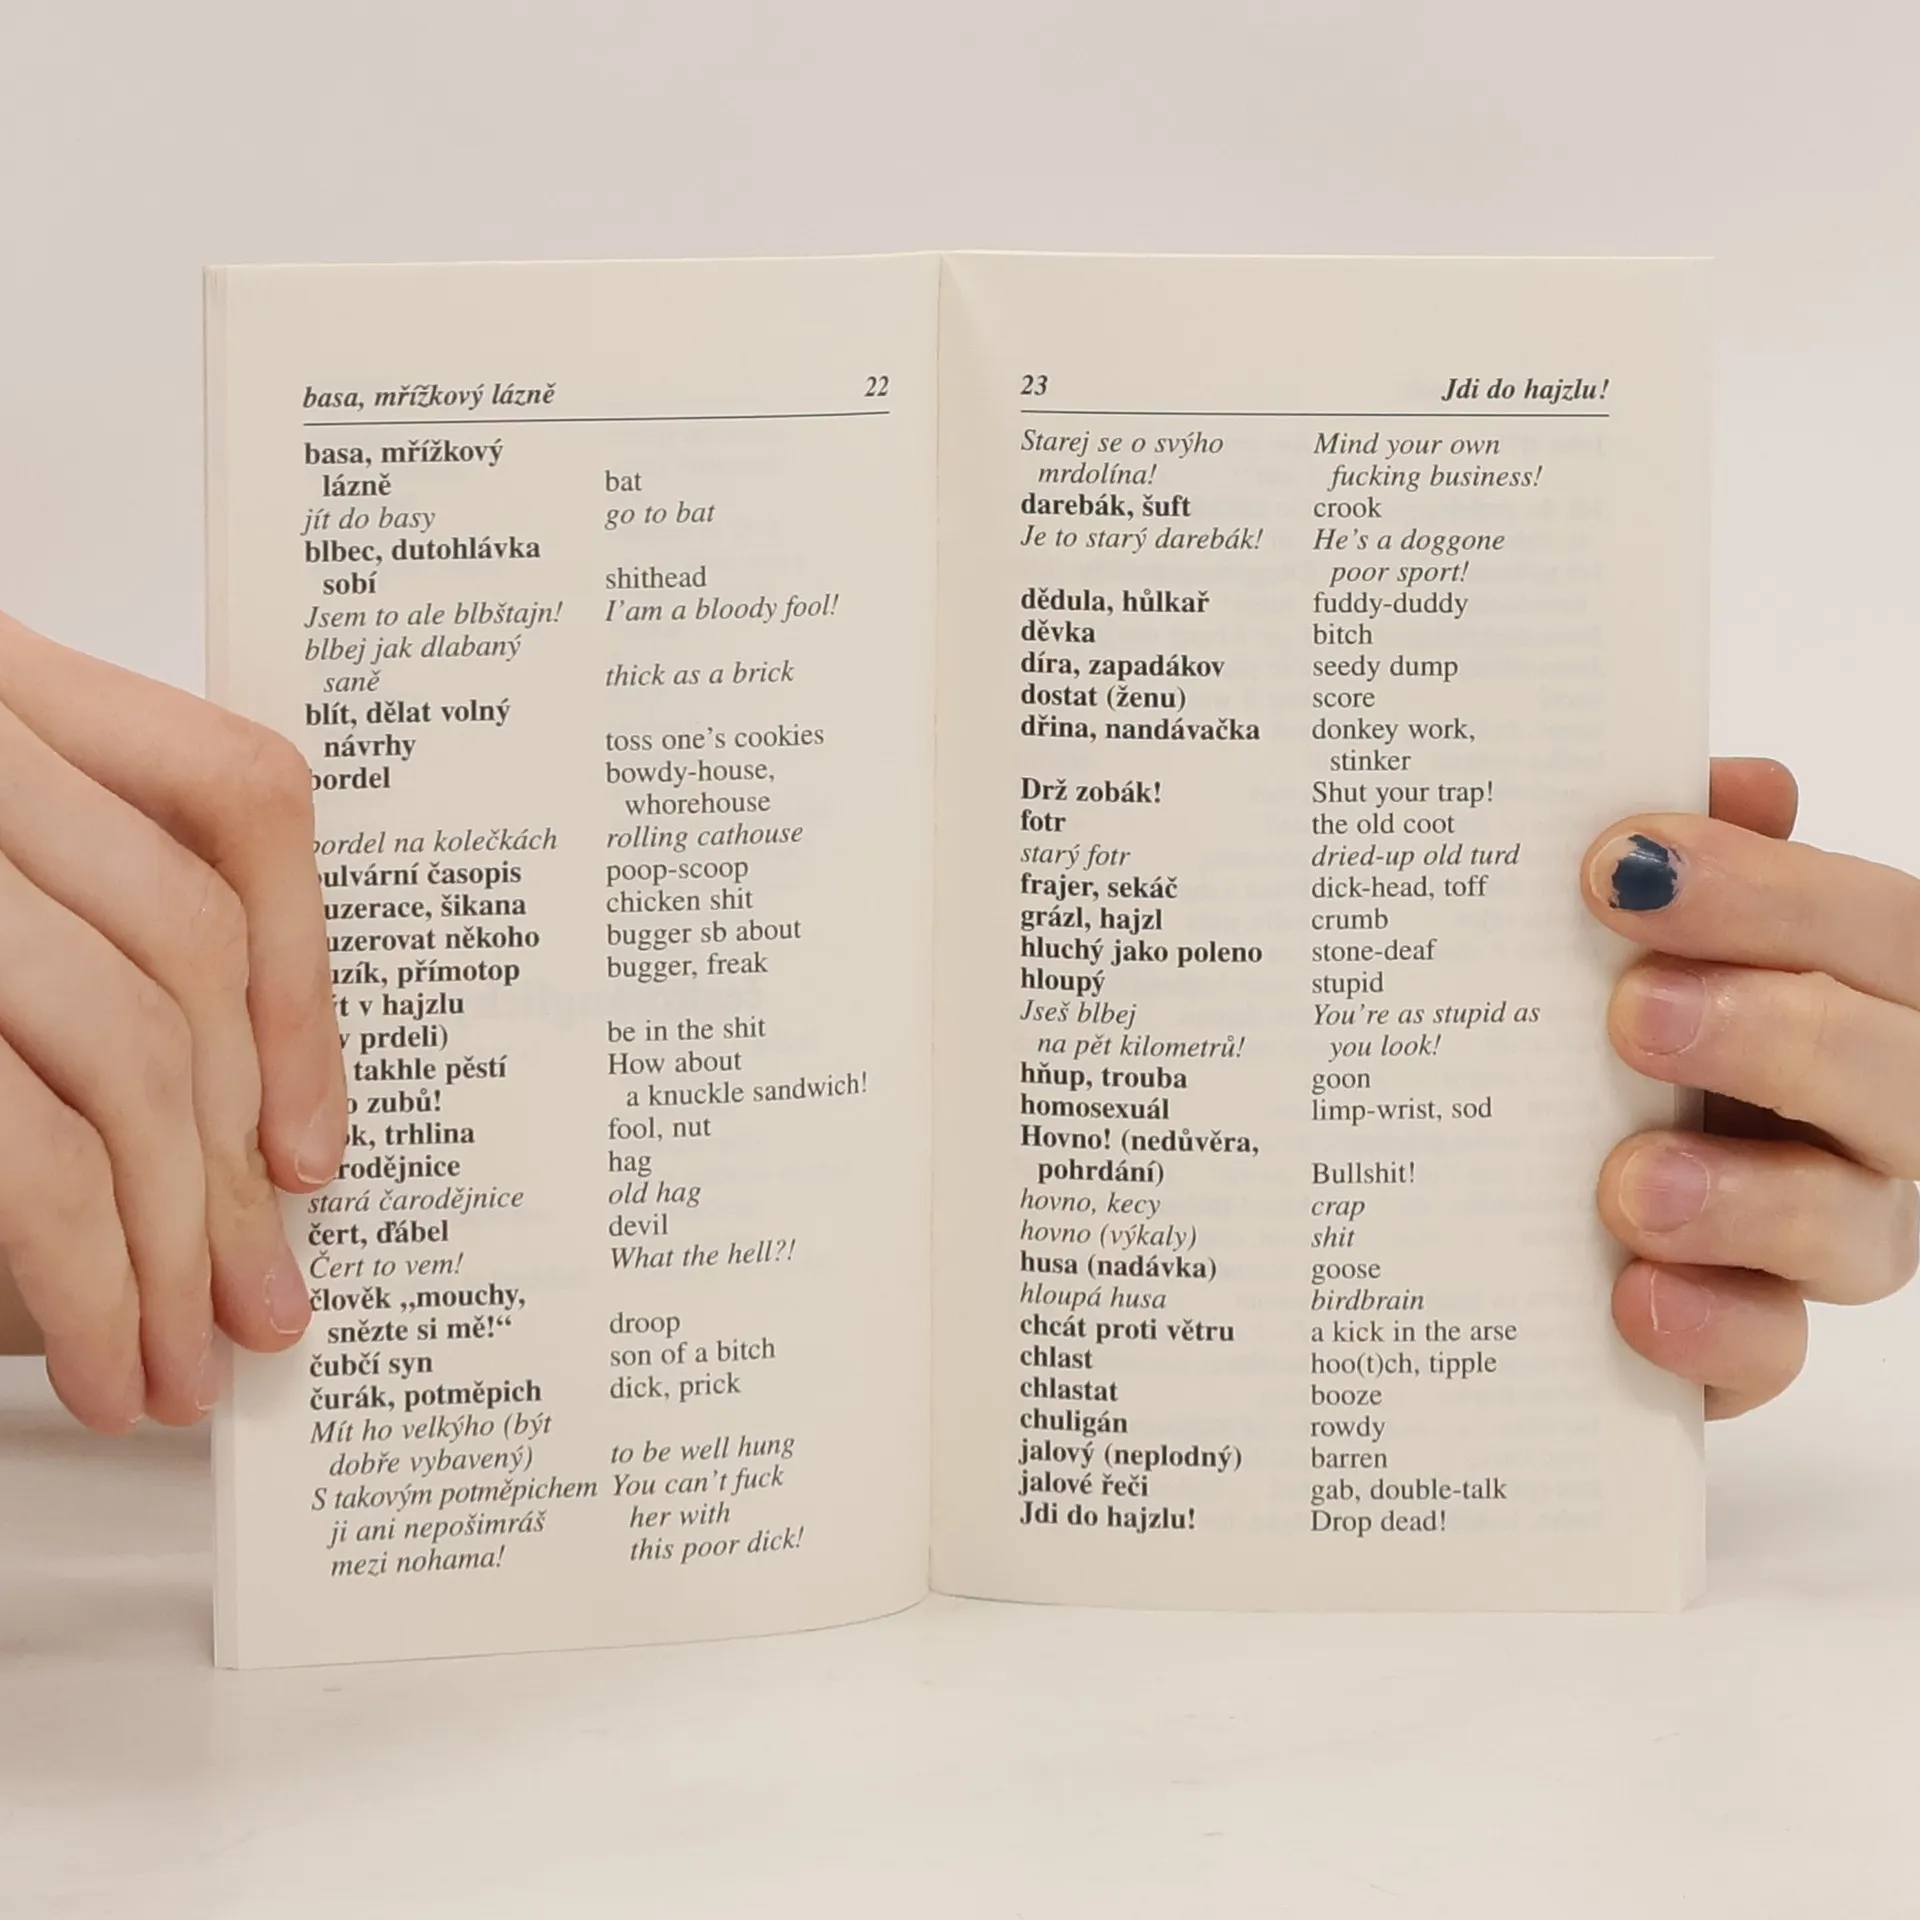 basa, mřížkový lázně 22
basa, mřížkový
lázně bat
jít do basy go to bat
blbec, dutohlávka
sobí shithead
Jsem to ale blbštajn! I'am a bloody fool!
blbej jak dlabaný
saně thick as a brick
blít, dělat volný
návrhy toss one's cookies
bordel bowdy-house,
whorehouse
bordel na kolečkách rolling cathouse
časopis poop-scoop
šikana chicken shit
někoho bugger sb about
přímotop bugger, freak
v hajzlu
v prdeli) be in the shit
takhle pěstí How about
zubů! a knuckle sandwich!
trhlina fool, nut
hag
stará čarodějnice old hag
čert, ďábel devil
Čert to vem! What the hell?!
člověk „mouchy,
snězte si mě!“ droop
čubčí syn son of a bitch
čurák, potměpich dick, prick
Mít ho velkýho (být
dobře vybavený) to be well hung
S takovým potměpichem You can't fuck
ji ani nepošimráš her with
mezi nohama! this poor dick!
23 Jdi do hajzlu!
Starej se o svýho Mind your own
mrdolína! fucking business!
darebák, šuft crook
Je to starý darebák! He's a doggone
poor sport!
dědula, hůlkař fuddy-duddy
děvka bitch
díra, zapadákov seedy dump
dostat (ženu) score
dřina, nandávačka donkey work,
stinker
Drž zobák! Shut your trap!
fotr the old coot
starý fotr dried-up old turd
frajer, sekáč dick-head, toff
grázl, hajzl crumb
hluchý jako poleno stone-deaf
hloupý stupid
Jseš blbej You're as stupid as
na pět kilometrů! you look!
hňup, trouba goon
homosexuál limp-wrist, sod
Hovno! (nedůvěra,
pohrdání) Bullshit!
hovno, kecy crap
hovno (výkaly) shit
husa (nadávka) goose
hloupá husa birdbrain
chcát proti větru a kick in the arse
chlast hoo(t)ch, tipple
chlastat booze
chuligán rowdy
jalový (neplodný) barren
jalové řeči gab, double-talk
Jdi do hajzlu! Drop dead!